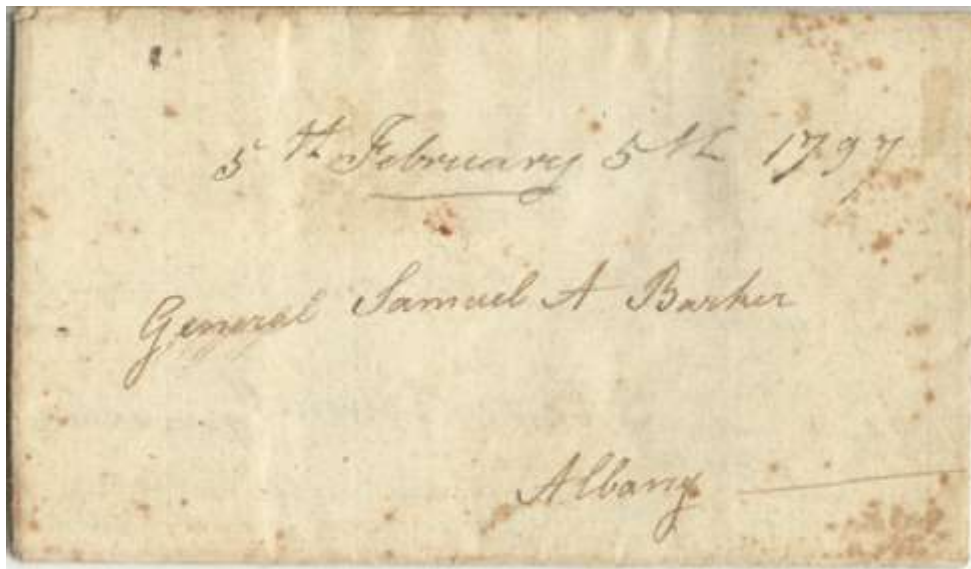 5th February 5th 1797
General Samuel A Barker
Albany